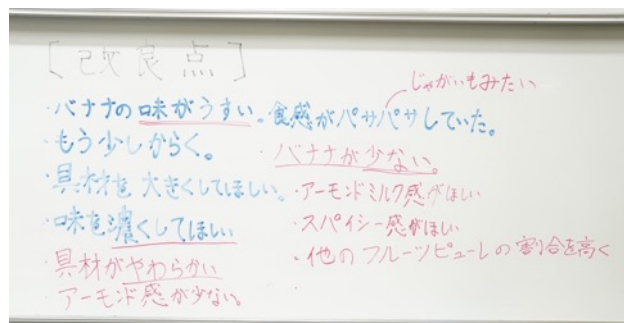 [改良点]
じゃがいもみたい
・バナナの味がうすい。食感がパサパサしていた。
・もう少しからく。
・バナナが少ない。
・具材を大きくしてほしい。
・アーモンドミルク感がほしい
・味を濃くしてほしい
・スパイシー感がほしい
・具材がやわらかい
・他のフルーツピューレの割合を高く
・アーモンド感が少ない。
・